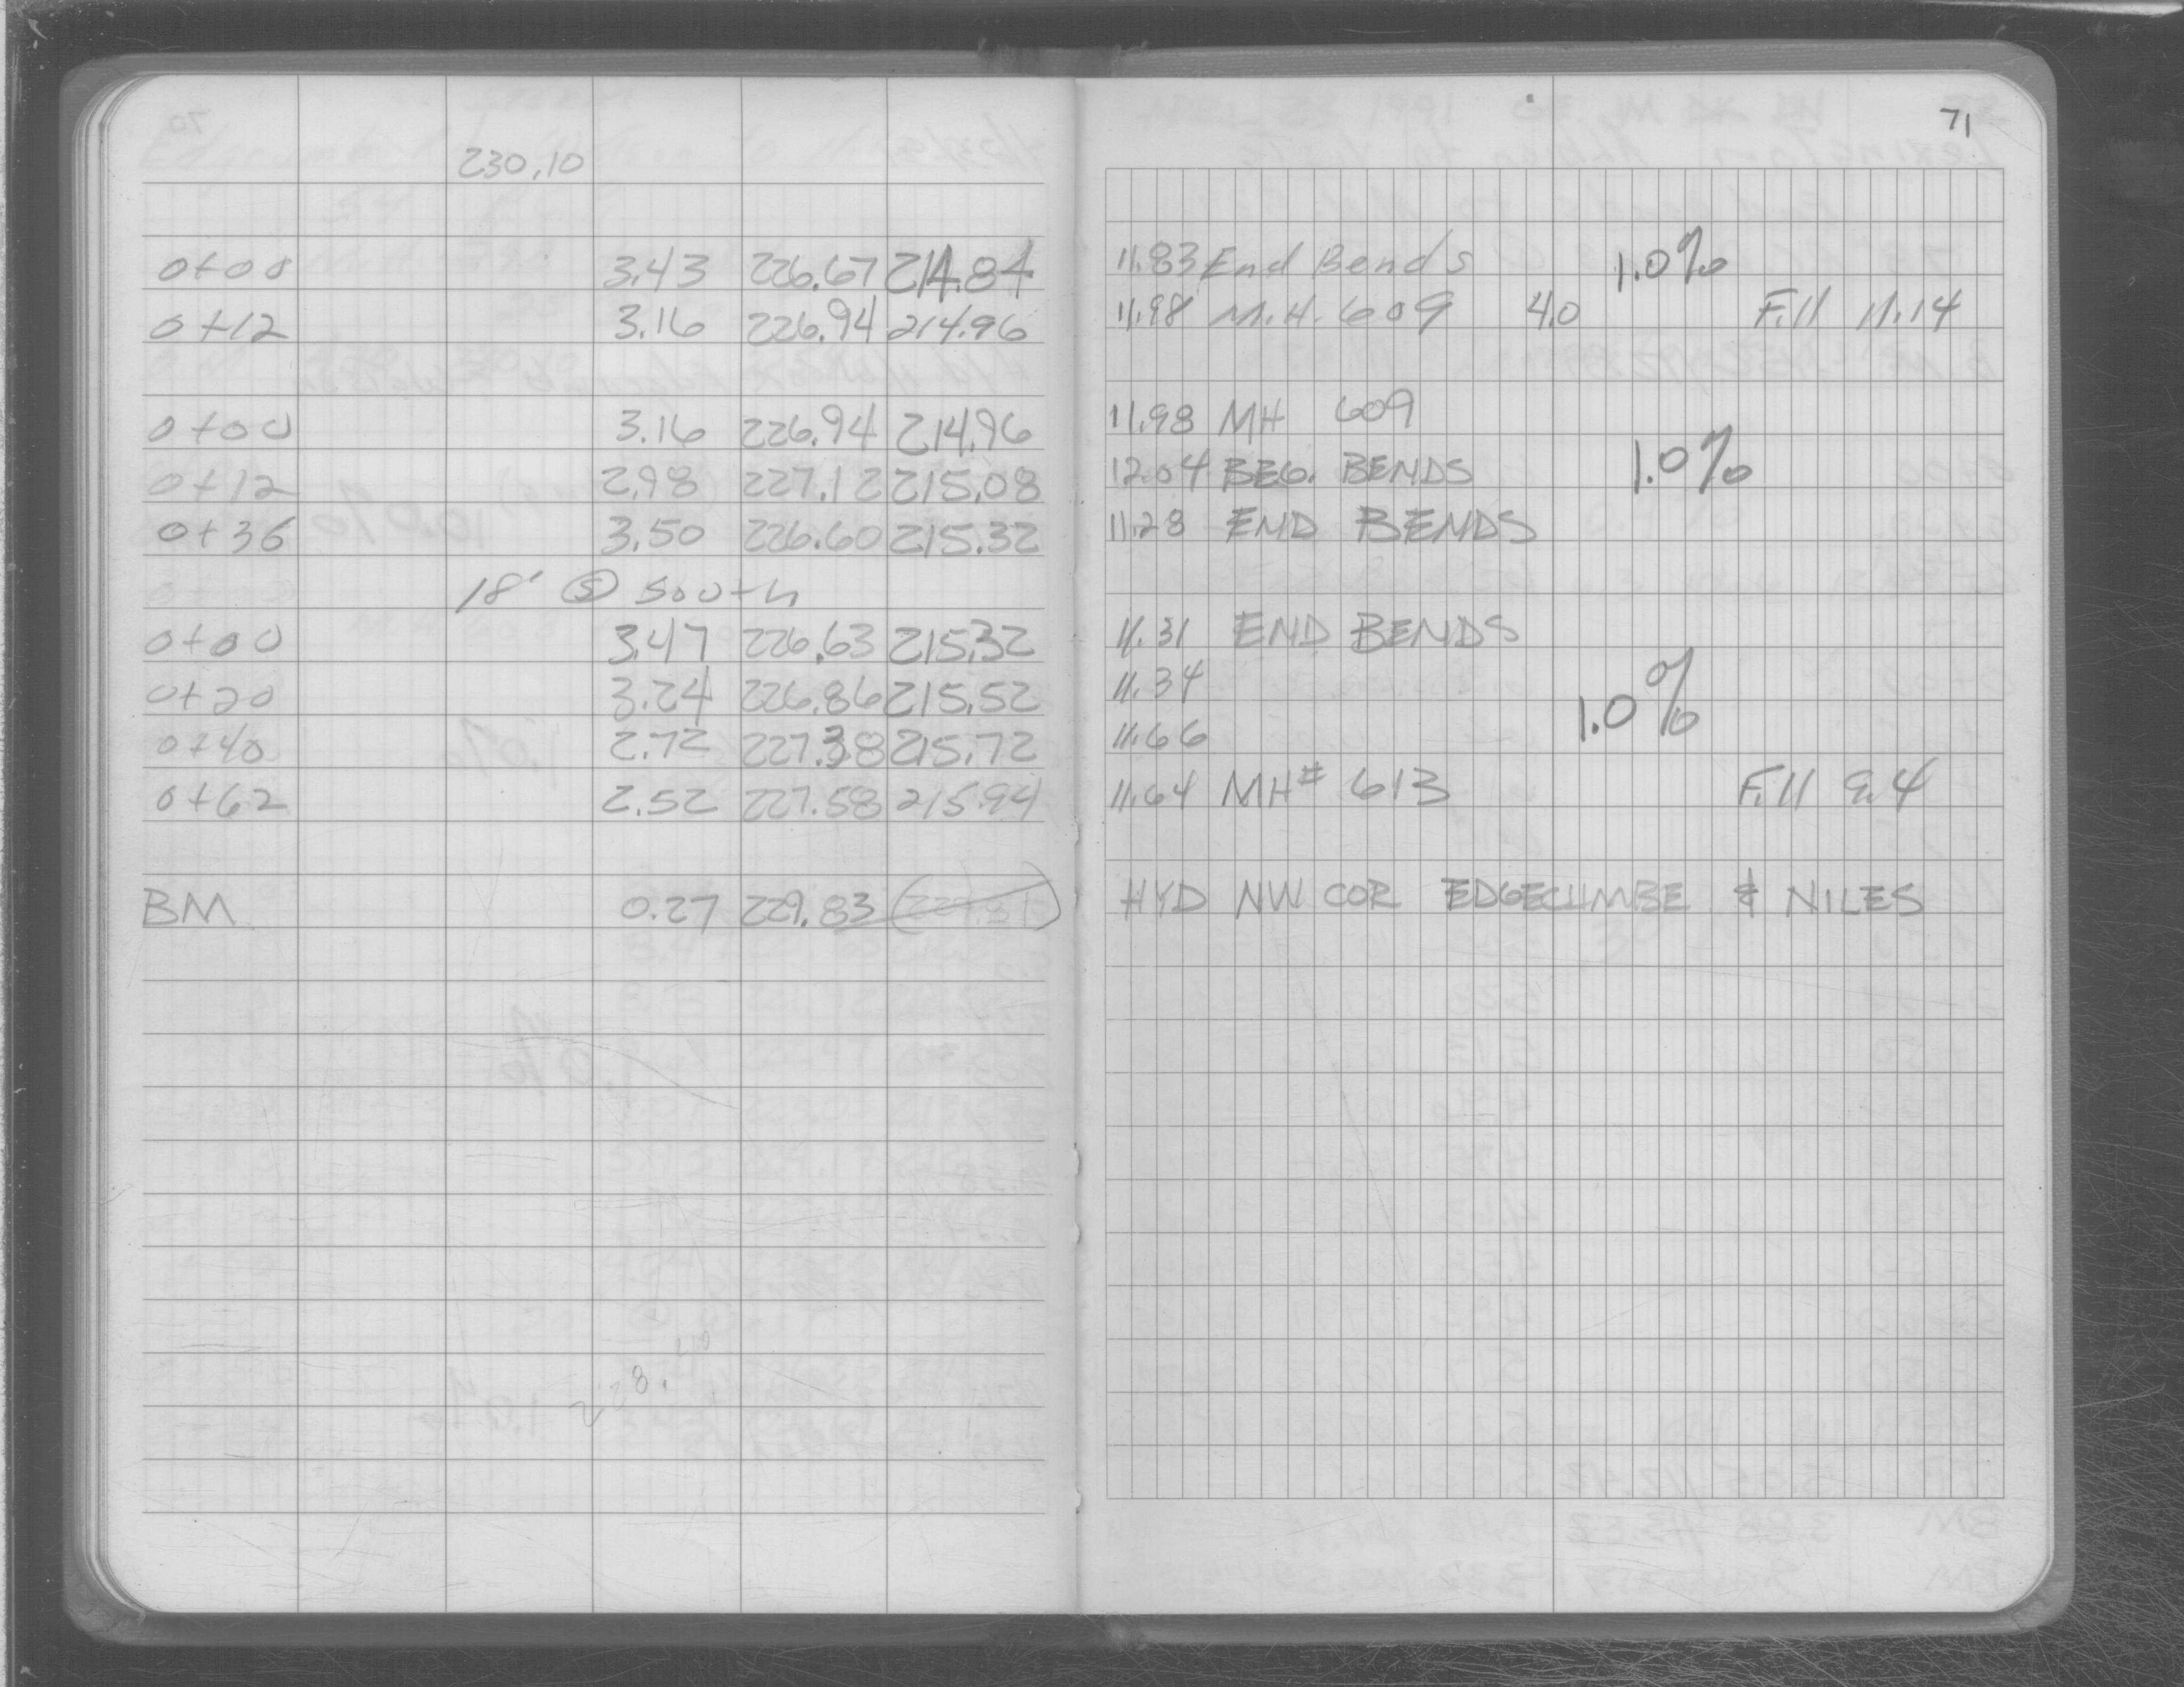 71
230.10
0+00 3.43 226.67 214.84 11.83 End Bends 1.0%
0+12 3.16 226.94 214.96 11.98 M.H. 609 4.0 Fill 11.14
0+00 3.16 226.94 214.96 11.98 MH 609
0+12 2.98 227.12 215.08 12.04 BEG. BENDS 1.0%
0+36 3.50 226.60 215.32 11.28 END BENDS
18' @ South
0+00 3.47 226.63 215.32 11.31 END BENDS
0+20 3.24 226.86 215.52 11.34
0+40 2.72 227.38 215.72 11.66 1.0%
0+62 2.52 227.58 215.94 11.64 MH# 613 Fill 9.4
BM 0.27 229.83 HYD NW COR EDGECUMBE & NILES